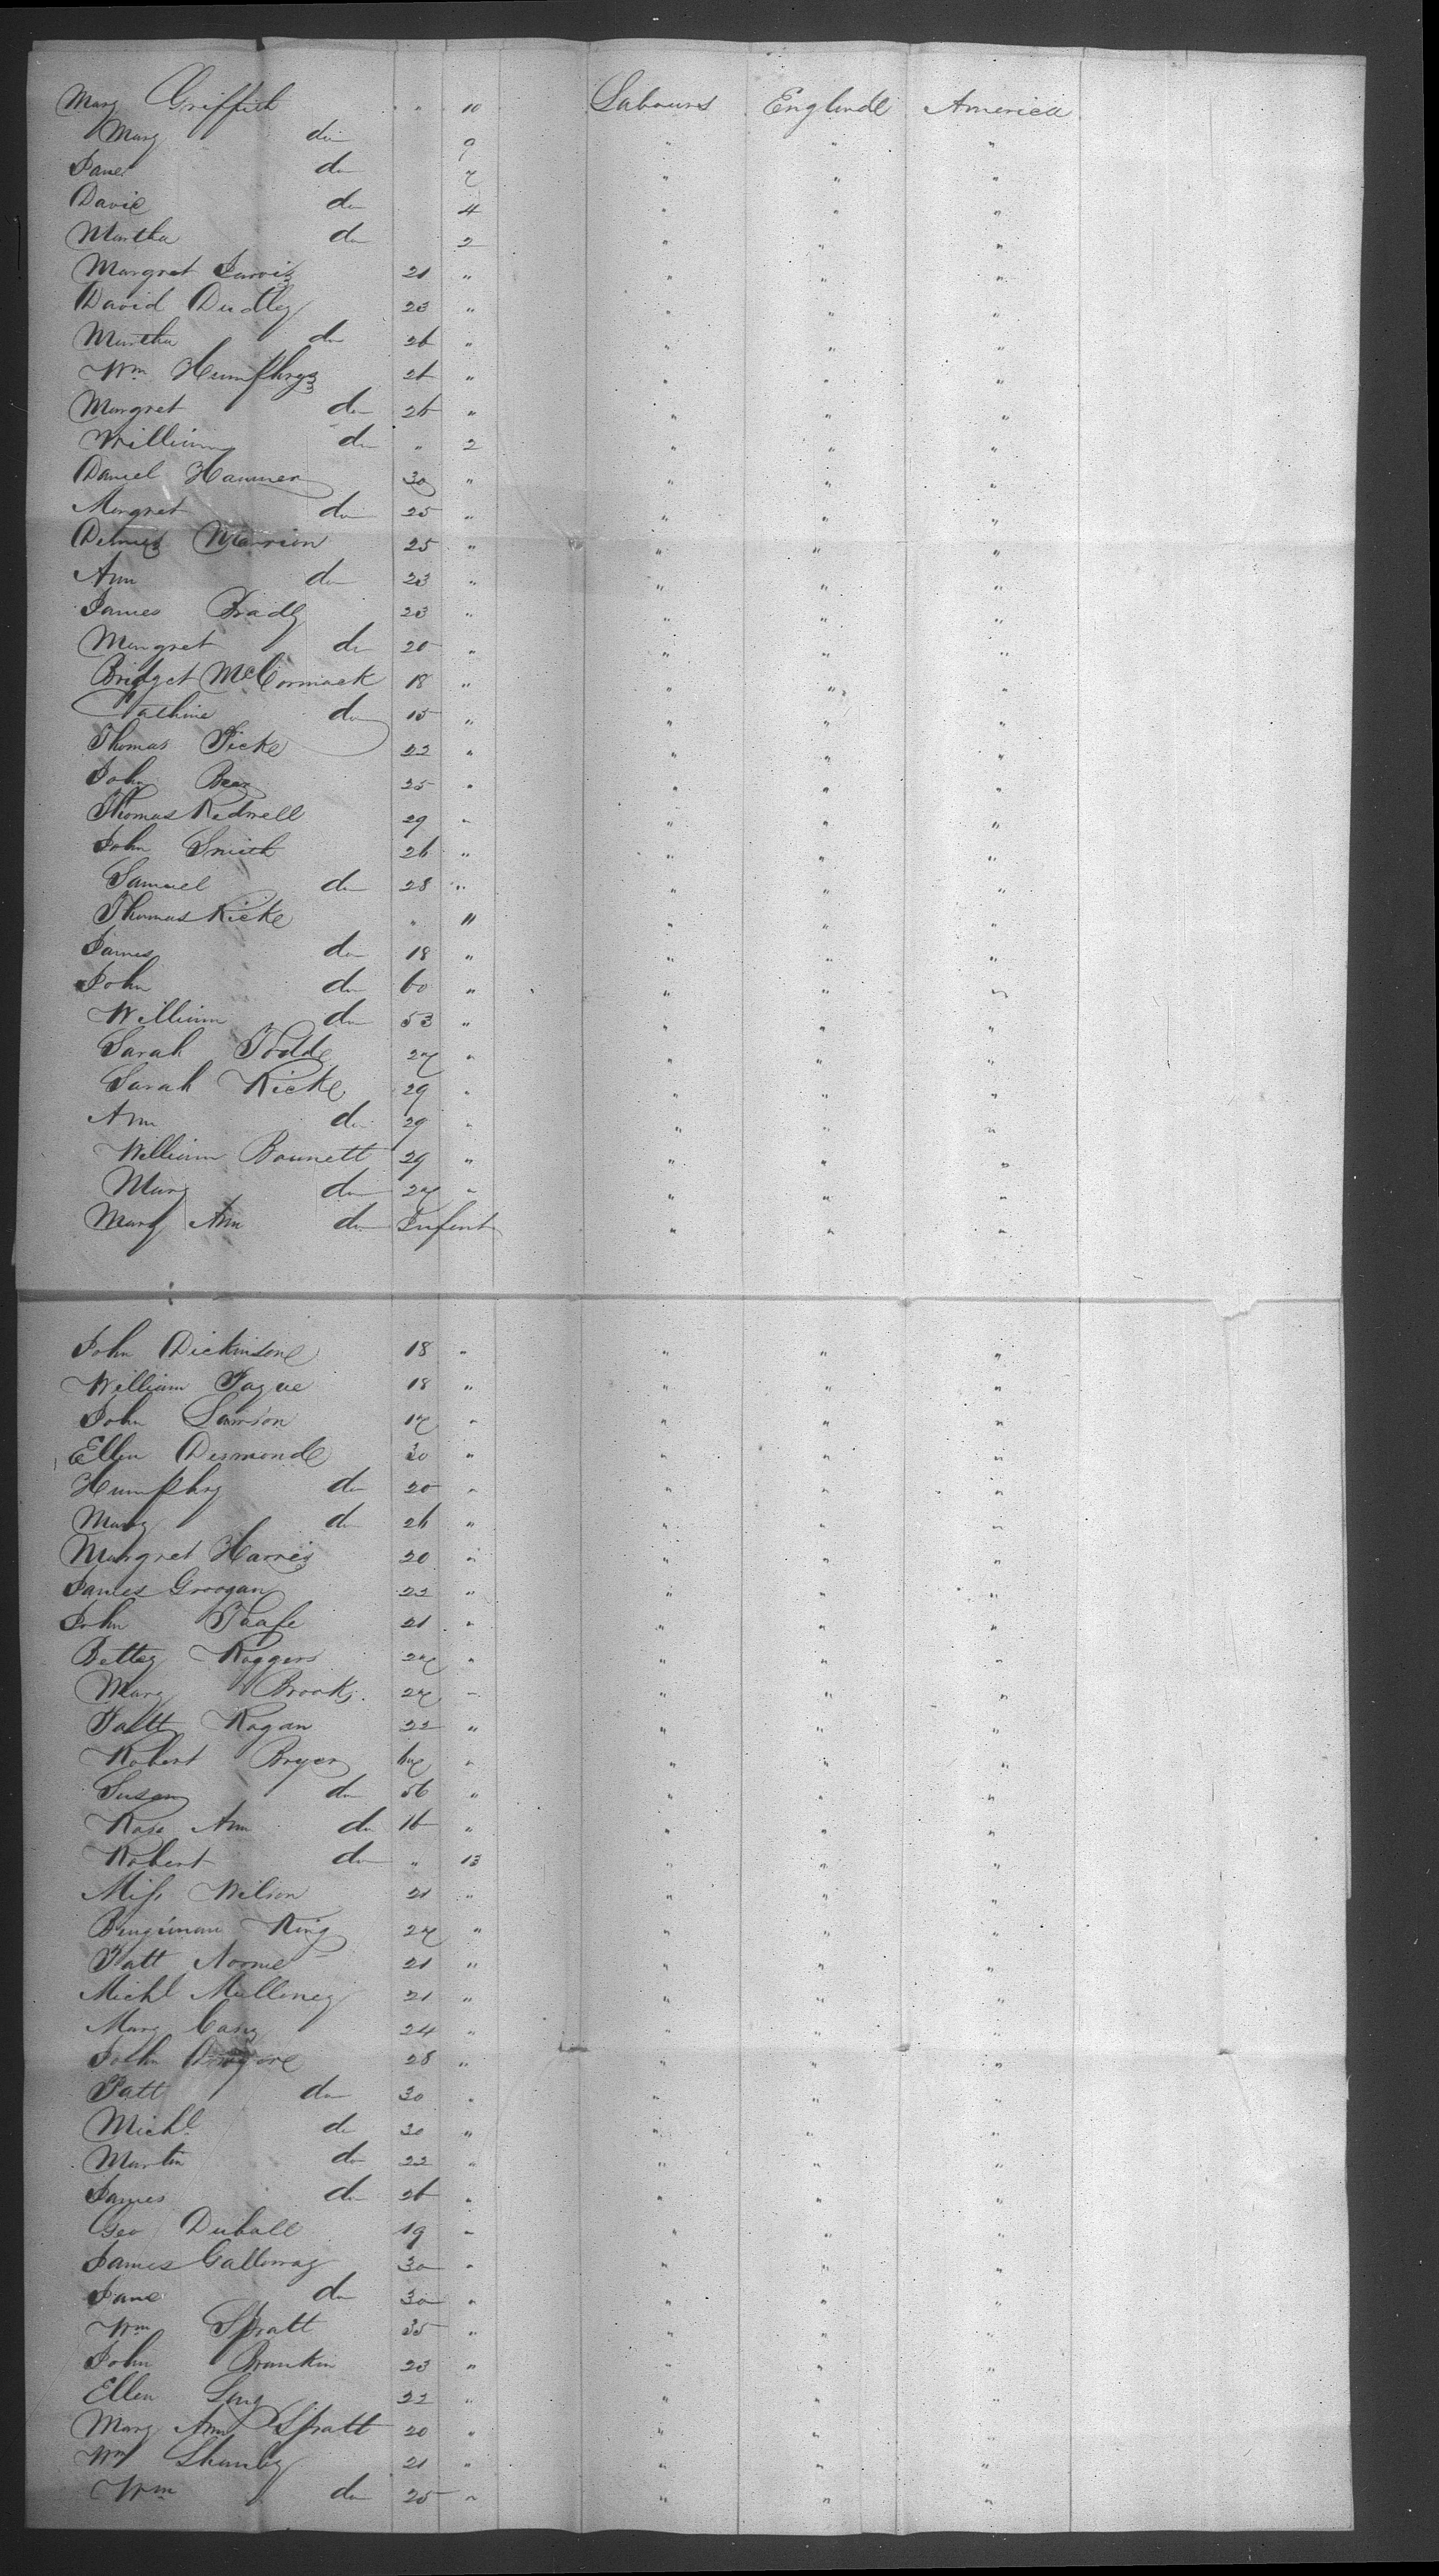 Mary Griffith " 10 Labours Englande America
Mary do 9 " " "
Jane do 7 " " "
David do 4 " " "
Martha do 2 " " "
Margret Jarvis 21 " " " "
David Dudley 23 " " " "
Martha do 26 " " " "
Wm Humphrys 26 " " " "
Margret do 26 " " " "
William do " 2 " " "
Daniel Hanmer 30 " " " "
Margret do 25 " " " "
Marrion 25 " " " "
Ann do 23 " " " "
James 23 " " " "
Margret do 20 " " " "
Bridget McCormack 18 " " " "
Cathine do 15 " " " "
Thomas 22 " " " "
John 25 " " " "
Thomas Kedwell 29 " " " "
John Smith 26 " " " "
Samuel do 28 " " " "
Thomas Kicke " 11 " " "
James do 18 " " " "
John do 60 " " " "
William do 53 " " " "
Sarah Todde 27 " " " "
Sarah Kicke 29 " " " "
Ann do 29 " " " "
William Bounett 29 " " " "
Mary do 27 " " " "
Mary Ann do Infent " " "
John Dickinsone 18 " " " "
William 18 " " " "
John Samson 17 " " " "
Ellen Desmonde 30 " " " "
Humphry do 20 " " " "
Mary do 26 " " " "
Margret Harris 20 " " " "
James Groogan 22 " " " "
John Taafe 21 " " " "
Bettey Roggers 27 " " " "
Mary Brook 27 " " " "
Patt Kogan 22 " " " "
Robert Bryer 67 " " " "
Susan do 56 " " " "
Rosa Ann do 16 " " " "
Robert do " 13 " " "
Miss Wilson 21 " " " "
Bengiman King 27 " " " "
Patt 21 " " " "
Michl Mulleney 21 " " " "
Mary Casey 24 " " " "
John 28 " " " "
Patt do 30 " " " "
Michl do 30 " " " "
Martin do 22 " " " "
James do 26 " " " "
Geo Duball 19 " " " "
James Galloway 30 " " " "
Jane do 30 " " " "
Wm Spratt 35 " " " "
John Brankin 23 " " " "
Ellen 22 " " " "
Mary Ann Spratt 20 " " " "
Wm Shanley 21 " " " "
Wm do 25 " " " "